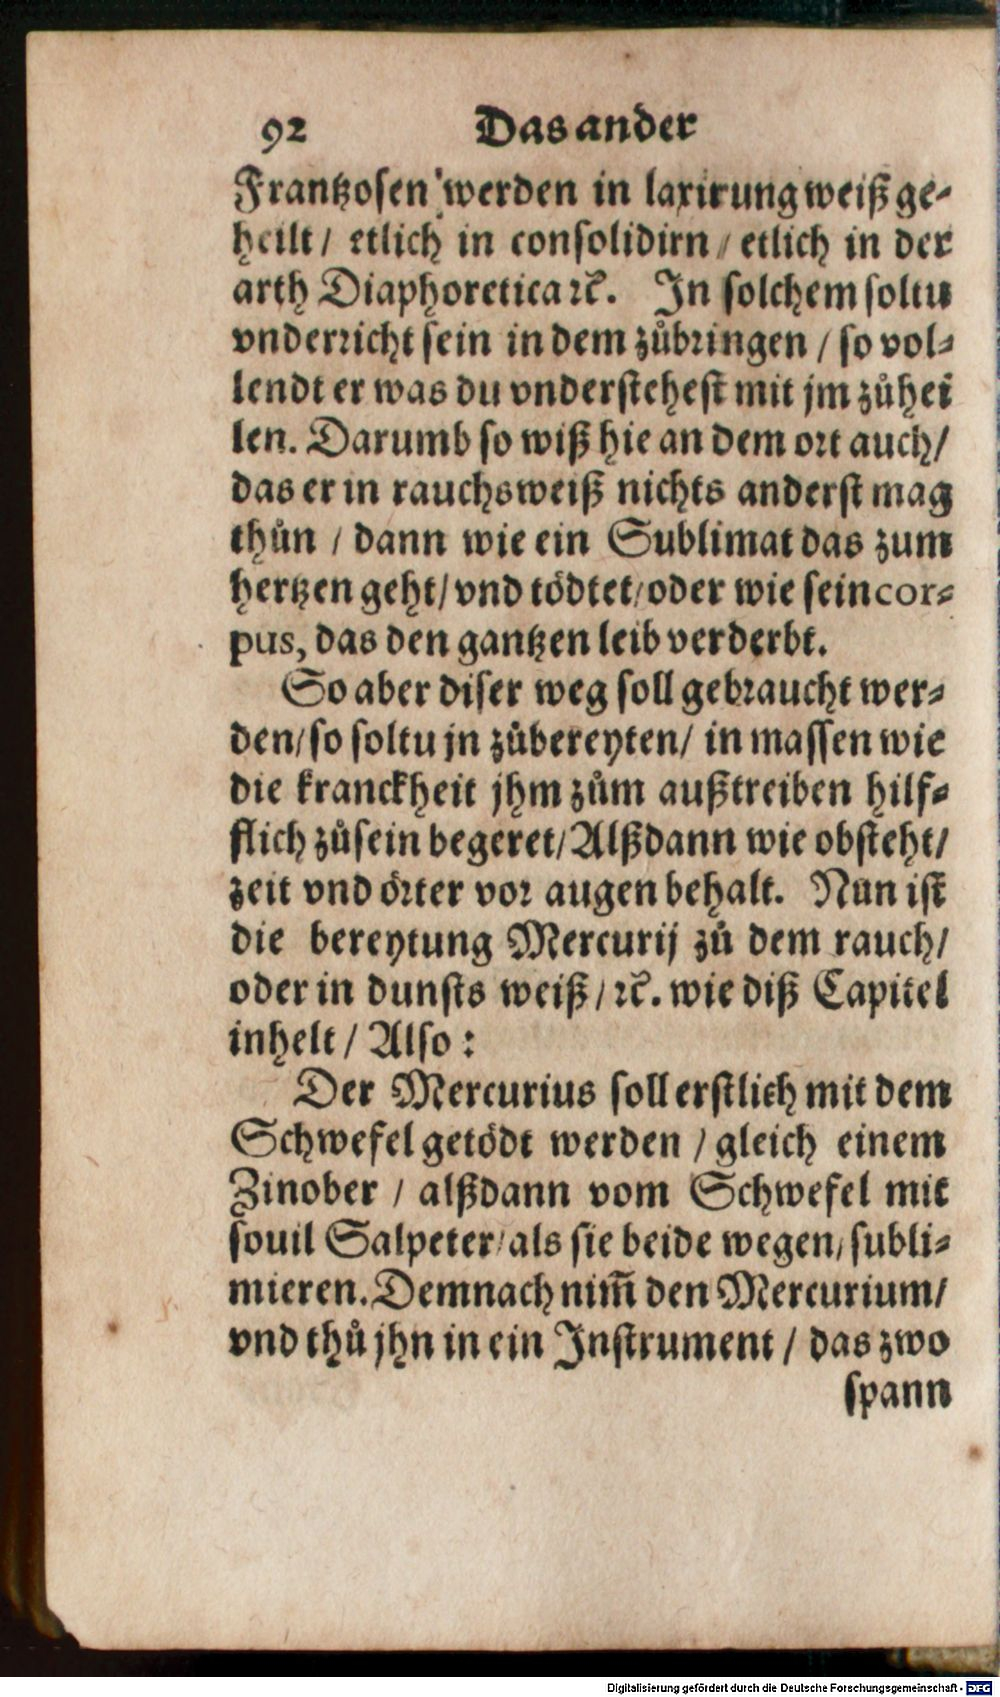 92 Das ander
Frantzosen werden in laxirung weiß ge-
heilt / etlich in consolidirn / etlich in der
arth Diaphoretica ꝛc̄. In solchem soltu
vnderricht sein in dem zůbringen / so vol-
lendt er was du vnderstehest mit jm zůhei
len. Darumb so wiß hie an dem ort auch /
das er in rauchsweiß nichts anderst mag
thůn / dann wie ein Sublimat das zum
hertzen geht / vnd tödtet / oder wie sein cor-
pus, das den gantzen leib verderbt.
So aber diser weg soll gebraucht wer-
den / so soltu jn zůbereyten / in massen wie
die kranckheit jhm zům außtreiben hilf-
flich zůsein begeret / Alßdann wie obsteht /
zeit vnd örter vor augen behalt. Nun ist
die bereytung Mercurij zů dem rauch /
oder in dunsts weiß / ꝛc̄. wie diß Capitel
inhelt / Also :
Der Mercurius soll erstlich mit dem
Schwefel getödt werden / gleich einem
Zinober / alßdann vom Schwefel mit
souil Salpeter / als sie beide wegen / subli-
mieren. Demnach nim̄ den Mercurium /
vnd thů jhn in ein Instrument / das zwo
spann
Digitalisierung gefördert durch die Deutsche Forschungsgemeinschaft - DFG